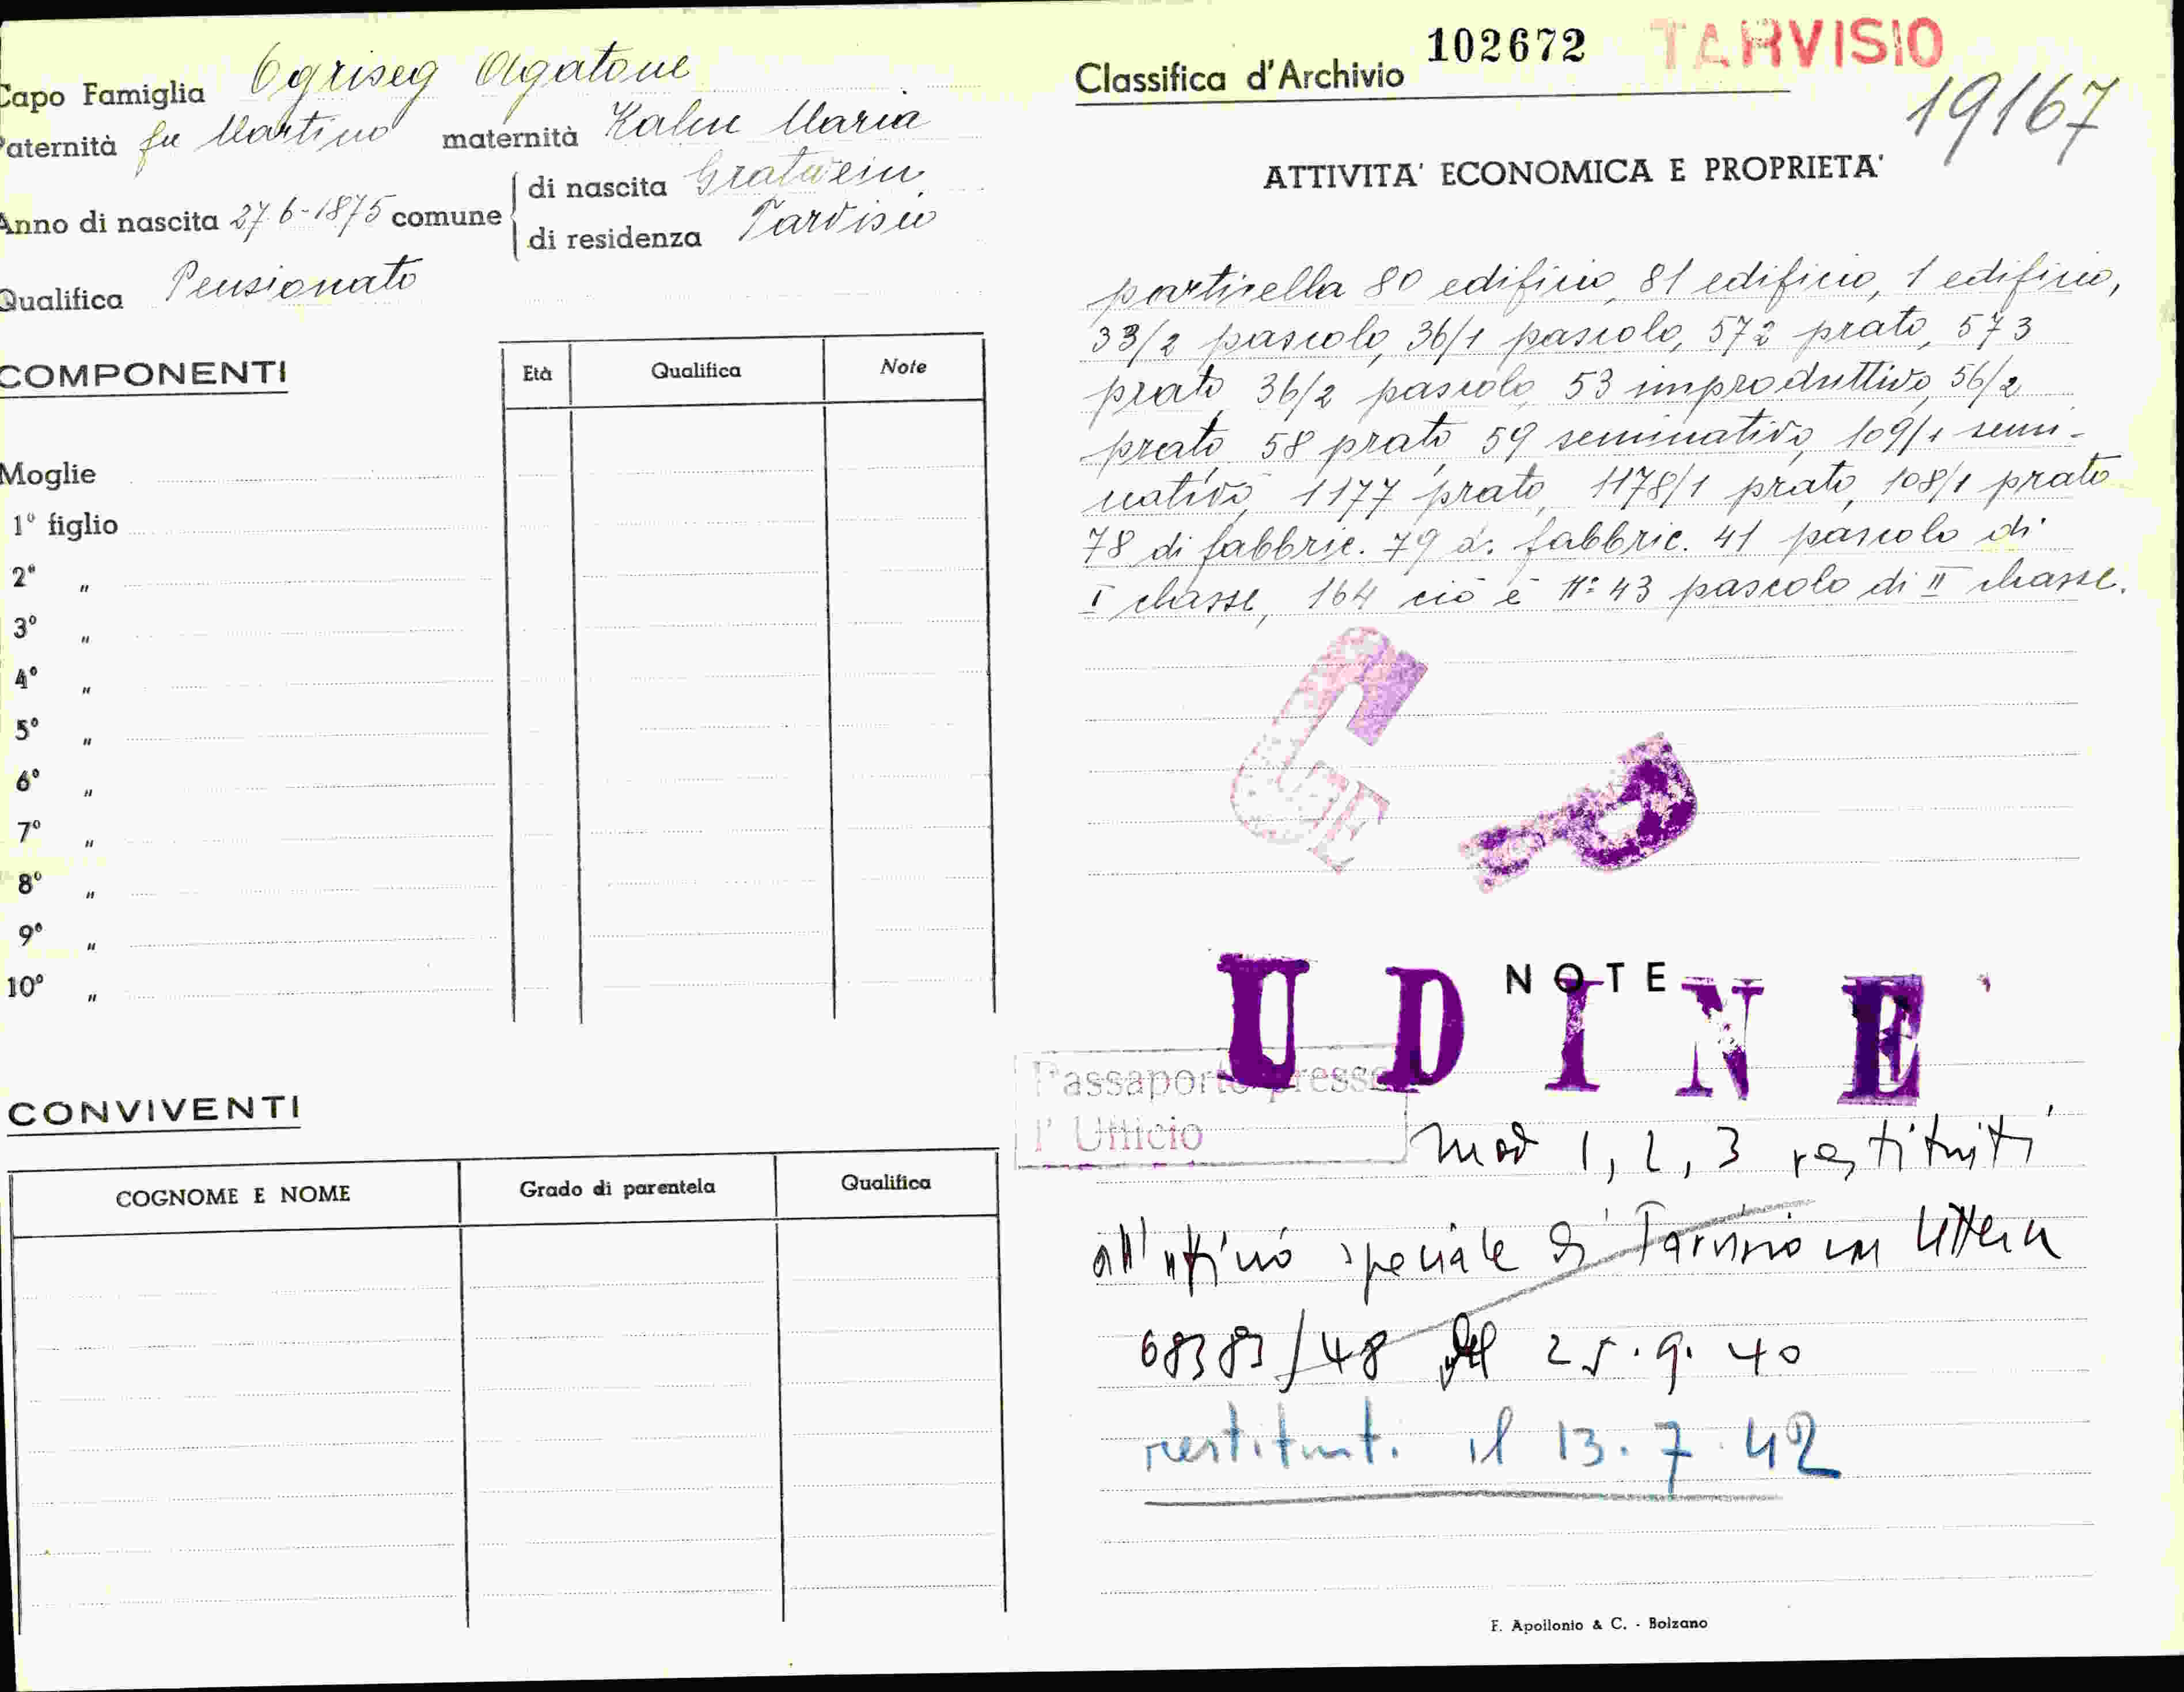 Capo Famiglia Ogriseg Agatone
Paternità fu Martino maternità Kalin Maria
Anno di nascita 27.6-1875 comune di nascita Gratwein
di residenza Tarvisio
Qualifica Pensionato
COMPONENTI Età Qualifica Note
Moglie
1º figlio
2º "
3º "
4º "
5º "
6º "
7º "
8º "
9º "
10º "
CONVIVENTI
COGNOME E NOME Grado di parentela Qualifica
Classifica d'Archivio 102672 TARVISIO
19167
ATTIVITA' ECONOMICA E PROPRIETA'
particella 80 edificio, 81 edificio, 1 edificio,
33/2 pascolo, 36/1 pascolo, 572 prato, 573
prato 36/2 pascolo, 53 improduttivo, 56/2
prato 58 prato, 59 seminativo, 109/1 semi-
nativo, 1177 prato, 1178/1 prato, 108/1 prato
78 di fabbric. 79 d. fabbric. 41 pascolo di
I classe, 164 ciò è Nº 43 pascolo di II classe.
GE
P
NOTE
UDINE
Passaporto presso
l' Ufficio
mod 1, 2, 3 restituiti
all'ufficio speciale di Tarvisio con lettera
68383/48 del 25.9.40
restituiti il 13.7.42
F. Apollonio & C. - Bolzano